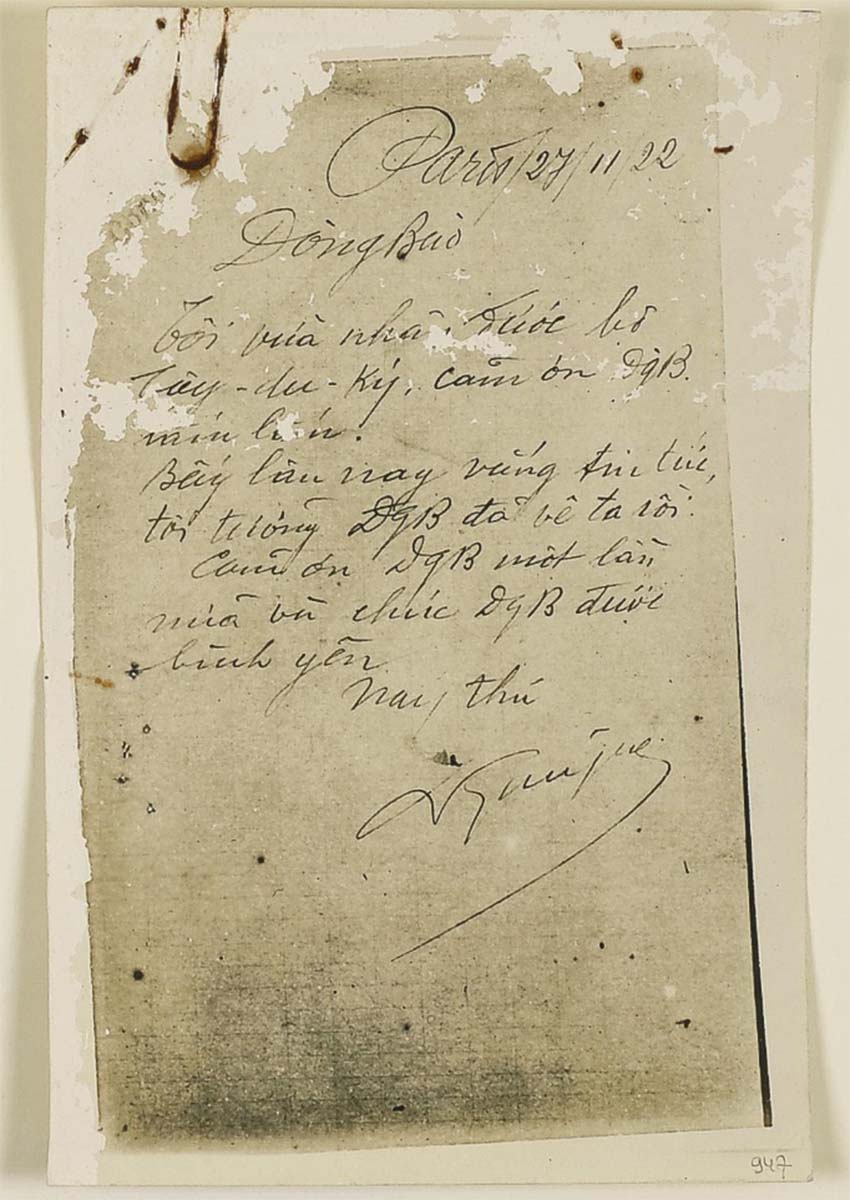 Paris/27/11/22
Đồng Bào
Tôi vừa nhận được bộ
Tây-du-ký. Cảm ơn ĐgB.
lắm.
Bấy lâu nay vắng tin tức,
tôi tưởng ĐgB đã về ta rồi.
Cảm ơn ĐgB một lần
nữa và chúc ĐgB được
bình yên
Nay thư
947